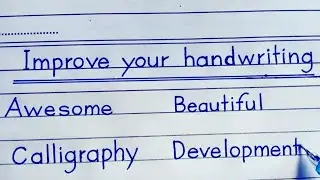 Improve your handwriting
Awesome Beautiful
Calligraphy Development